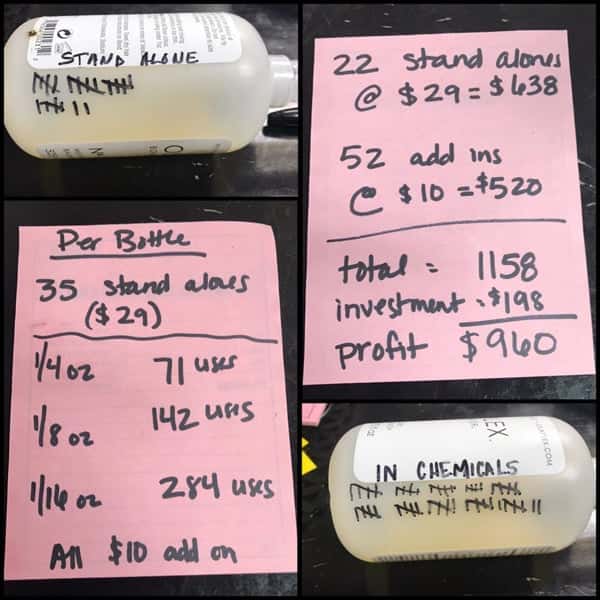 STAND ALONE
22 stand alones
@ $29 = $638
52 add ins
@ $10 = $520
total = 1158
investment = $198
profit $960
Per Bottle
35 stand alones
($29)
1/4 oz 71 uses
1/8 oz 142 uses
1/16 oz 284 uses
All $10 add on
LEX.
IN CHEMICALS